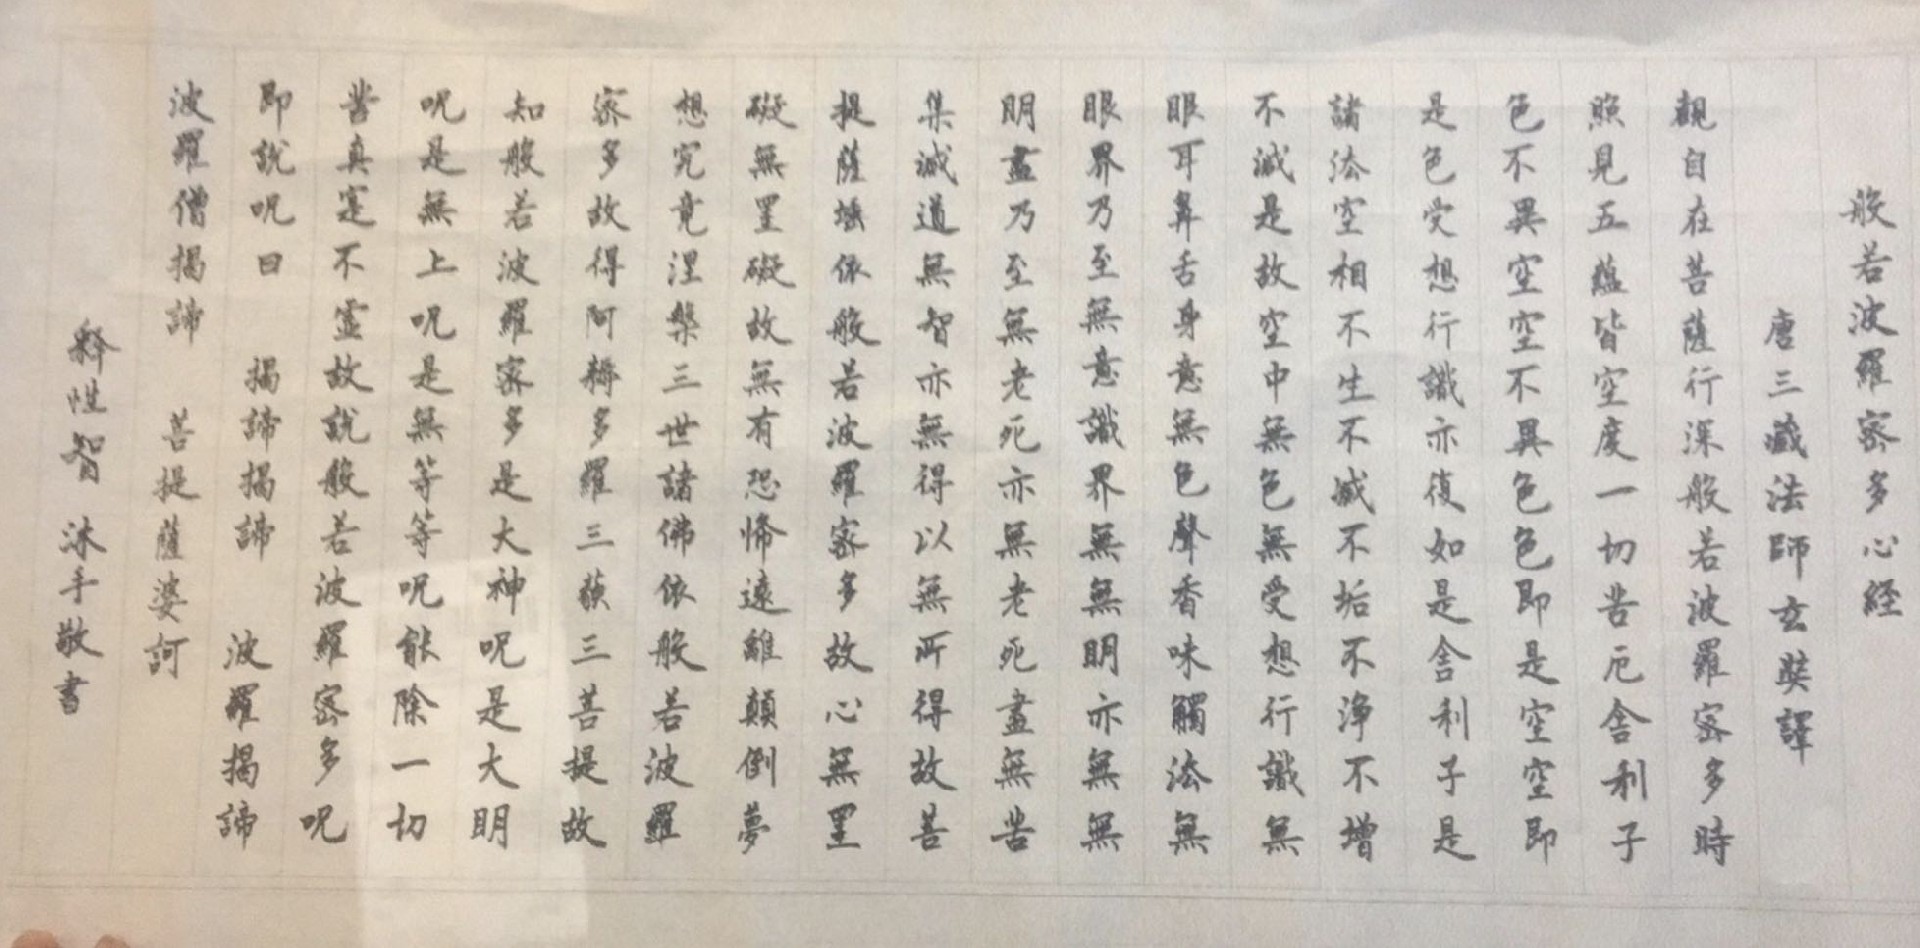 般若波羅蜜多心経
唐三藏法師玄奘譯
觀自在菩薩行深般若波羅蜜多時
照見五蘊皆空度一切苦厄舍利子
色不異空空不異色色即是空空即
是色受想行識亦復如是舍利子是
諸法空相不生不滅不垢不淨不增
不滅是故空中無色無受想行識無
眼耳鼻舌身意無色聲香味觸法無
眼界乃至無意識界無無明亦無無
明盡乃至無老死亦無老死盡無苦
集滅道無智亦無得以無所得故菩
提薩埵依般若波羅蜜多故心無罣
礙無罣礙故無有恐怖遠離顛倒夢
想究竟涅槃三世諸佛依般若波羅
蜜多故得阿耨多羅三藐三菩提故
知般若波羅蜜多是大神呪是大明
呪是無上呪是無等等呪能除一切
苦真寔不虛故說般若波羅蜜多呪
即說呪曰 揭諦揭諦 波羅揭諦
波羅僧揭諦 菩提薩婆訶
釋性智 沐手敬書